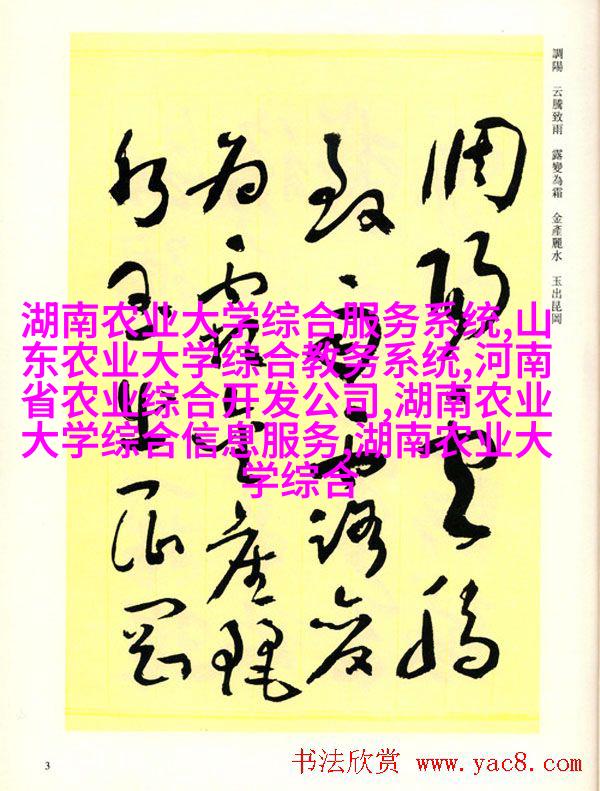 調陽　云騰致雨　露變為霜　金產麗水　玉出昆岡
調陽云騰
致雨露變
為霜金產麗
水玉出昆岡
湖南农业大学综合服务系统,山
东农业大学综合教务系统,河南
省农业综合开发公司,湖南农业
大学综合信息服务,湖南农业大
学综合
3
书法欣赏 www.yac8.com